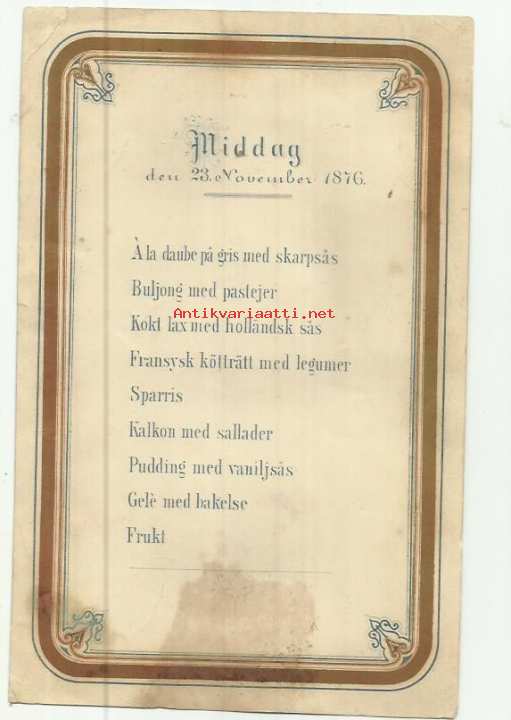 Middag
den 23. November 1876.
À la daube på gris med skarpsås
Buljong med pastejer
Antikvariaatti.net
Kokt lax med holländsk sås
Fransysk kötträtt med legumer
Sparris
Kalkon med sallader
Pudding med vaniljsås
Gelè med bakelse
Frukt